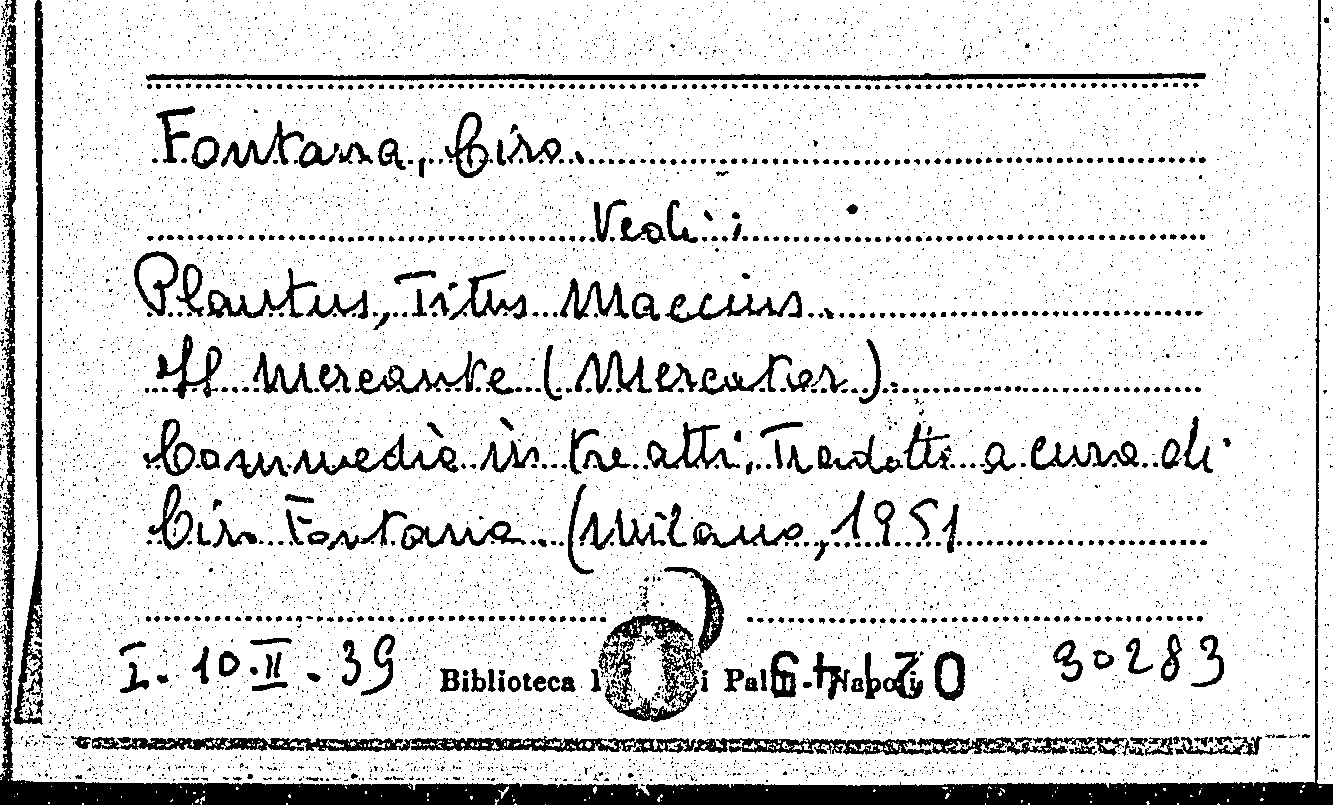 Fontana, Ciro.
Vedi:
Plautus, Titus Maccius.
Il Mercante (Mercator).
Commedia in tre atti. Tradotti a cura di
Ciro Fontana. (Milano, 1951
I. 10.II.39 Biblioteca i Napoli 30283